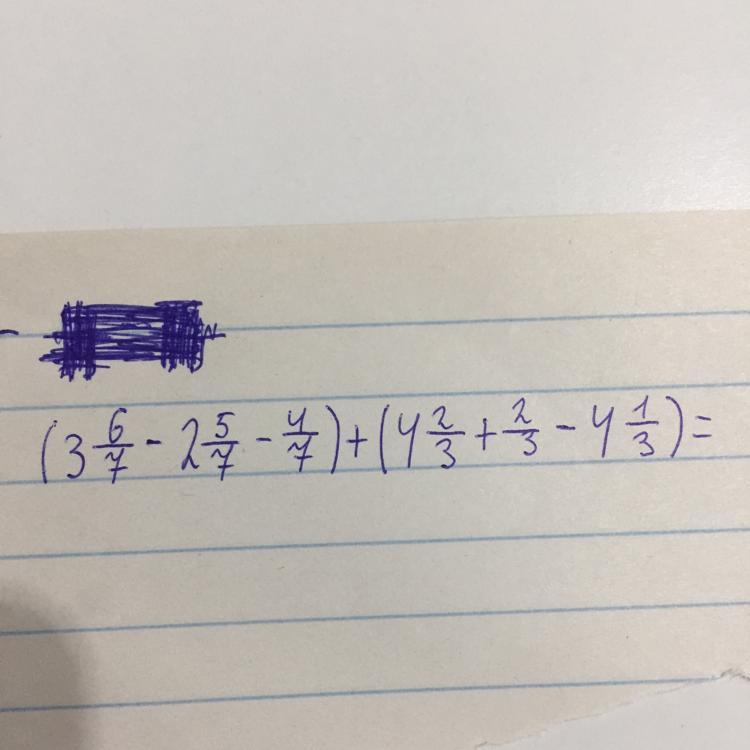 (3 6/7 - 2 5/7 - 4/7) + (4 2/3 + 2/3 - 4 1/3) =